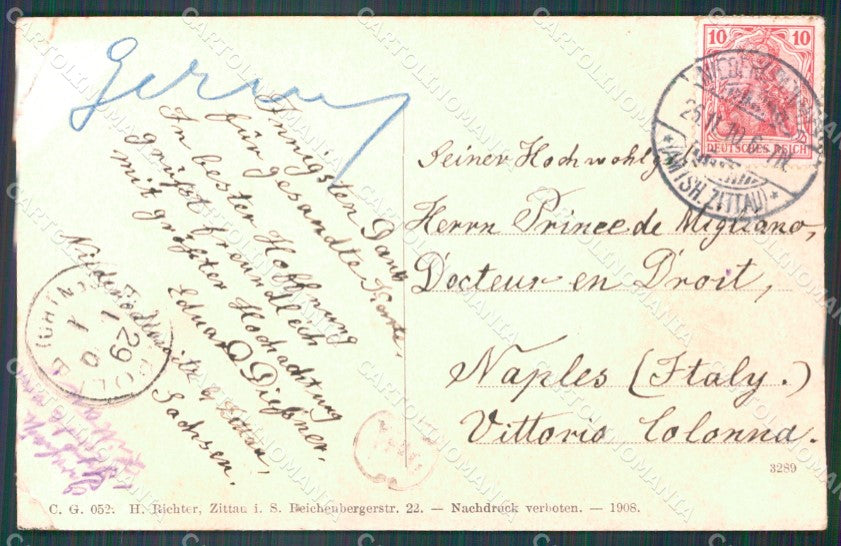 Innigsten Dank
für gesandte Karte.
In bester Hoffnung
grüßt freundlich
mit größter Hochachtung
Eduard Dießner.
b. Zittau,
Sachsen.
10 10
DEUTSCHES REICH
25.11.10.
*(AMTSH. ZITTAU)*
Seiner Hochwohlg
Herrn Prince de Migliano,
Docteur en Droit,
Naples (Italy.)
Vittoria Colonna.
3289
C. G. 052. H. Richter, Zittau i. S. Reichenbergerstr. 22. — Nachdruck verboten. — 1908.
CARTOLINOMANIA